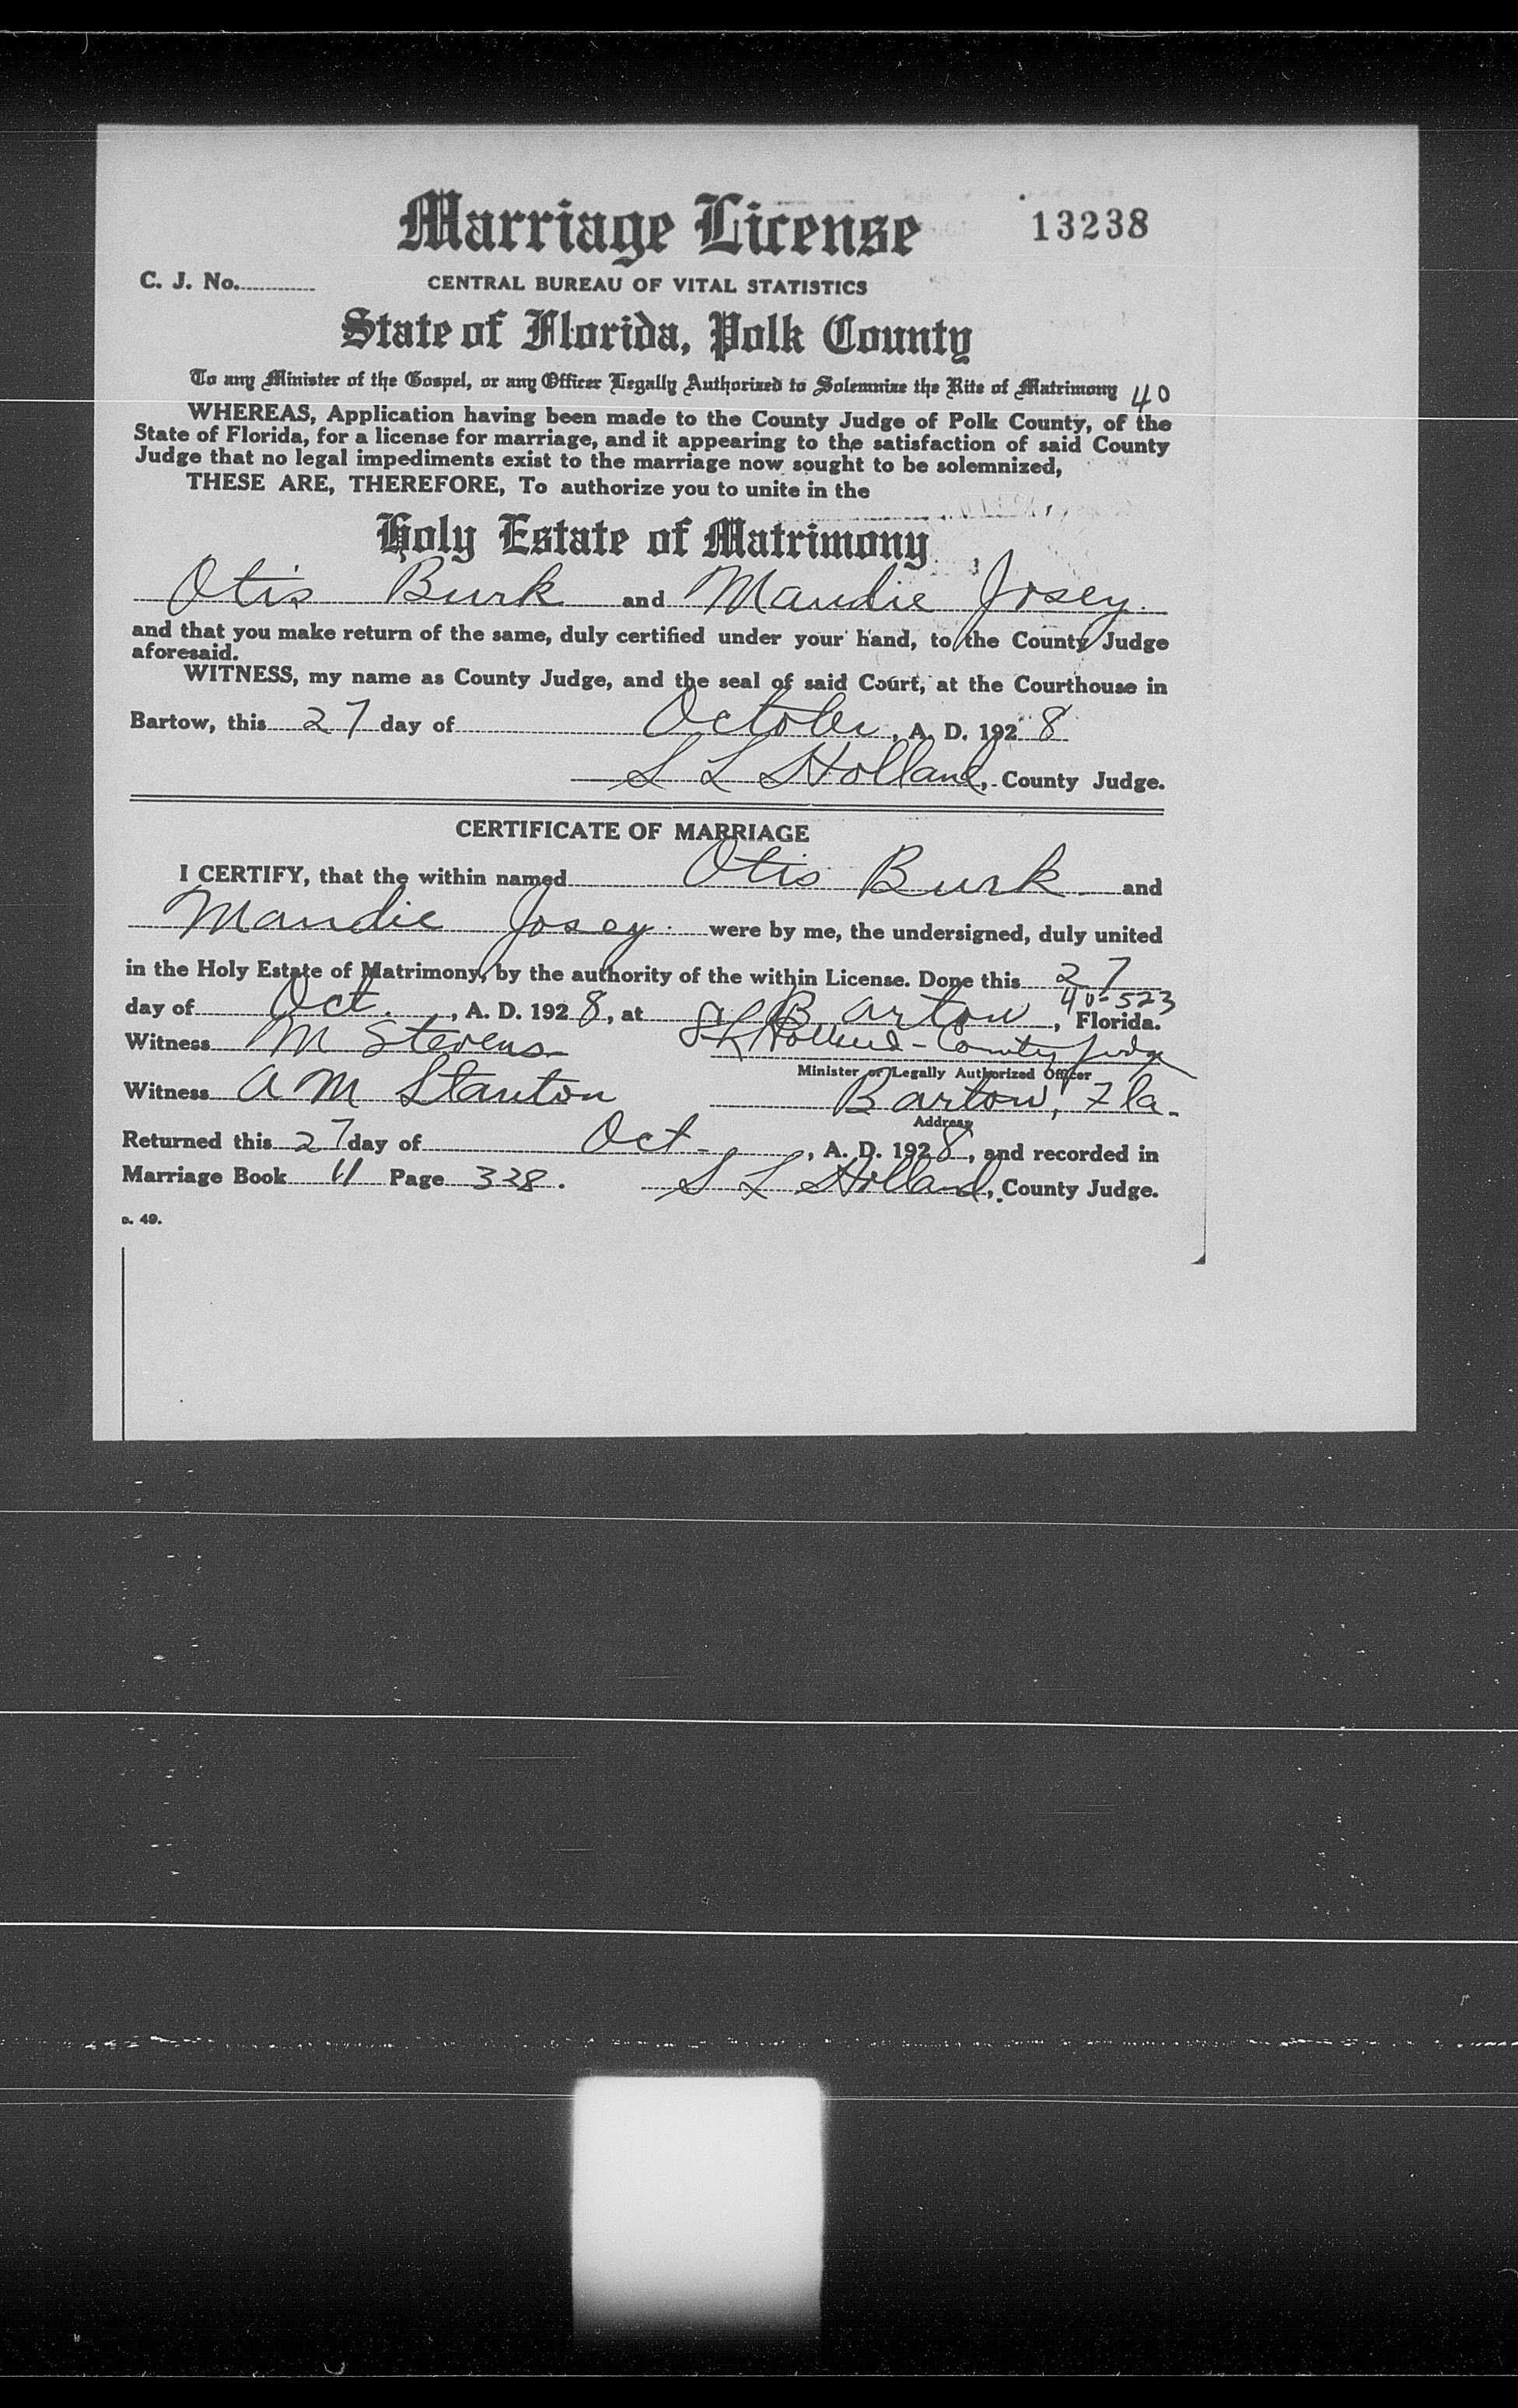 Marriage License 13238
C. J. No.
CENTRAL BUREAU OF VITAL STATISTICS
State of Florida, Polk County
To any Minister of the Gospel, or any Officer Legally Authorized to Solemnize the Rite of Matrimony 40
WHEREAS, Application having been made to the County Judge of Polk County, of the
State of Florida, for a license for marriage, and it appearing to the satisfaction of said County
Judge that no legal impediments exist to the marriage now sought to be solemnized,
THESE ARE, THEREFORE, To authorize you to unite in the
Holy Estate of Matrimony
Otis Burk and Maudie Josey
and that you make return of the same, duly certified under your hand, to the County Judge
aforesaid.
WITNESS, my name as County Judge, and the seal of said Court, at the Courthouse in
Bartow, this 27 day of October, A. D. 1928
S L Holland, County Judge.
CERTIFICATE OF MARRIAGE
I CERTIFY, that the within named Otis Burk and
Maudie Josey were by me, the undersigned, duly united
in the Holy Estate of Matrimony, by the authority of the within License. Done this 27
40-523
day of Oct., A. D. 1928, at Bartow, Florida.
Witness M Stevens S L Holland - County Judge
Minister or Legally Authorized Officer
Witness A M Stanton Bartow, Fla.
Address
Returned this 27 day of Oct., A. D. 1928, and recorded in
Marriage Book 11 Page 338. S L Holland, County Judge.